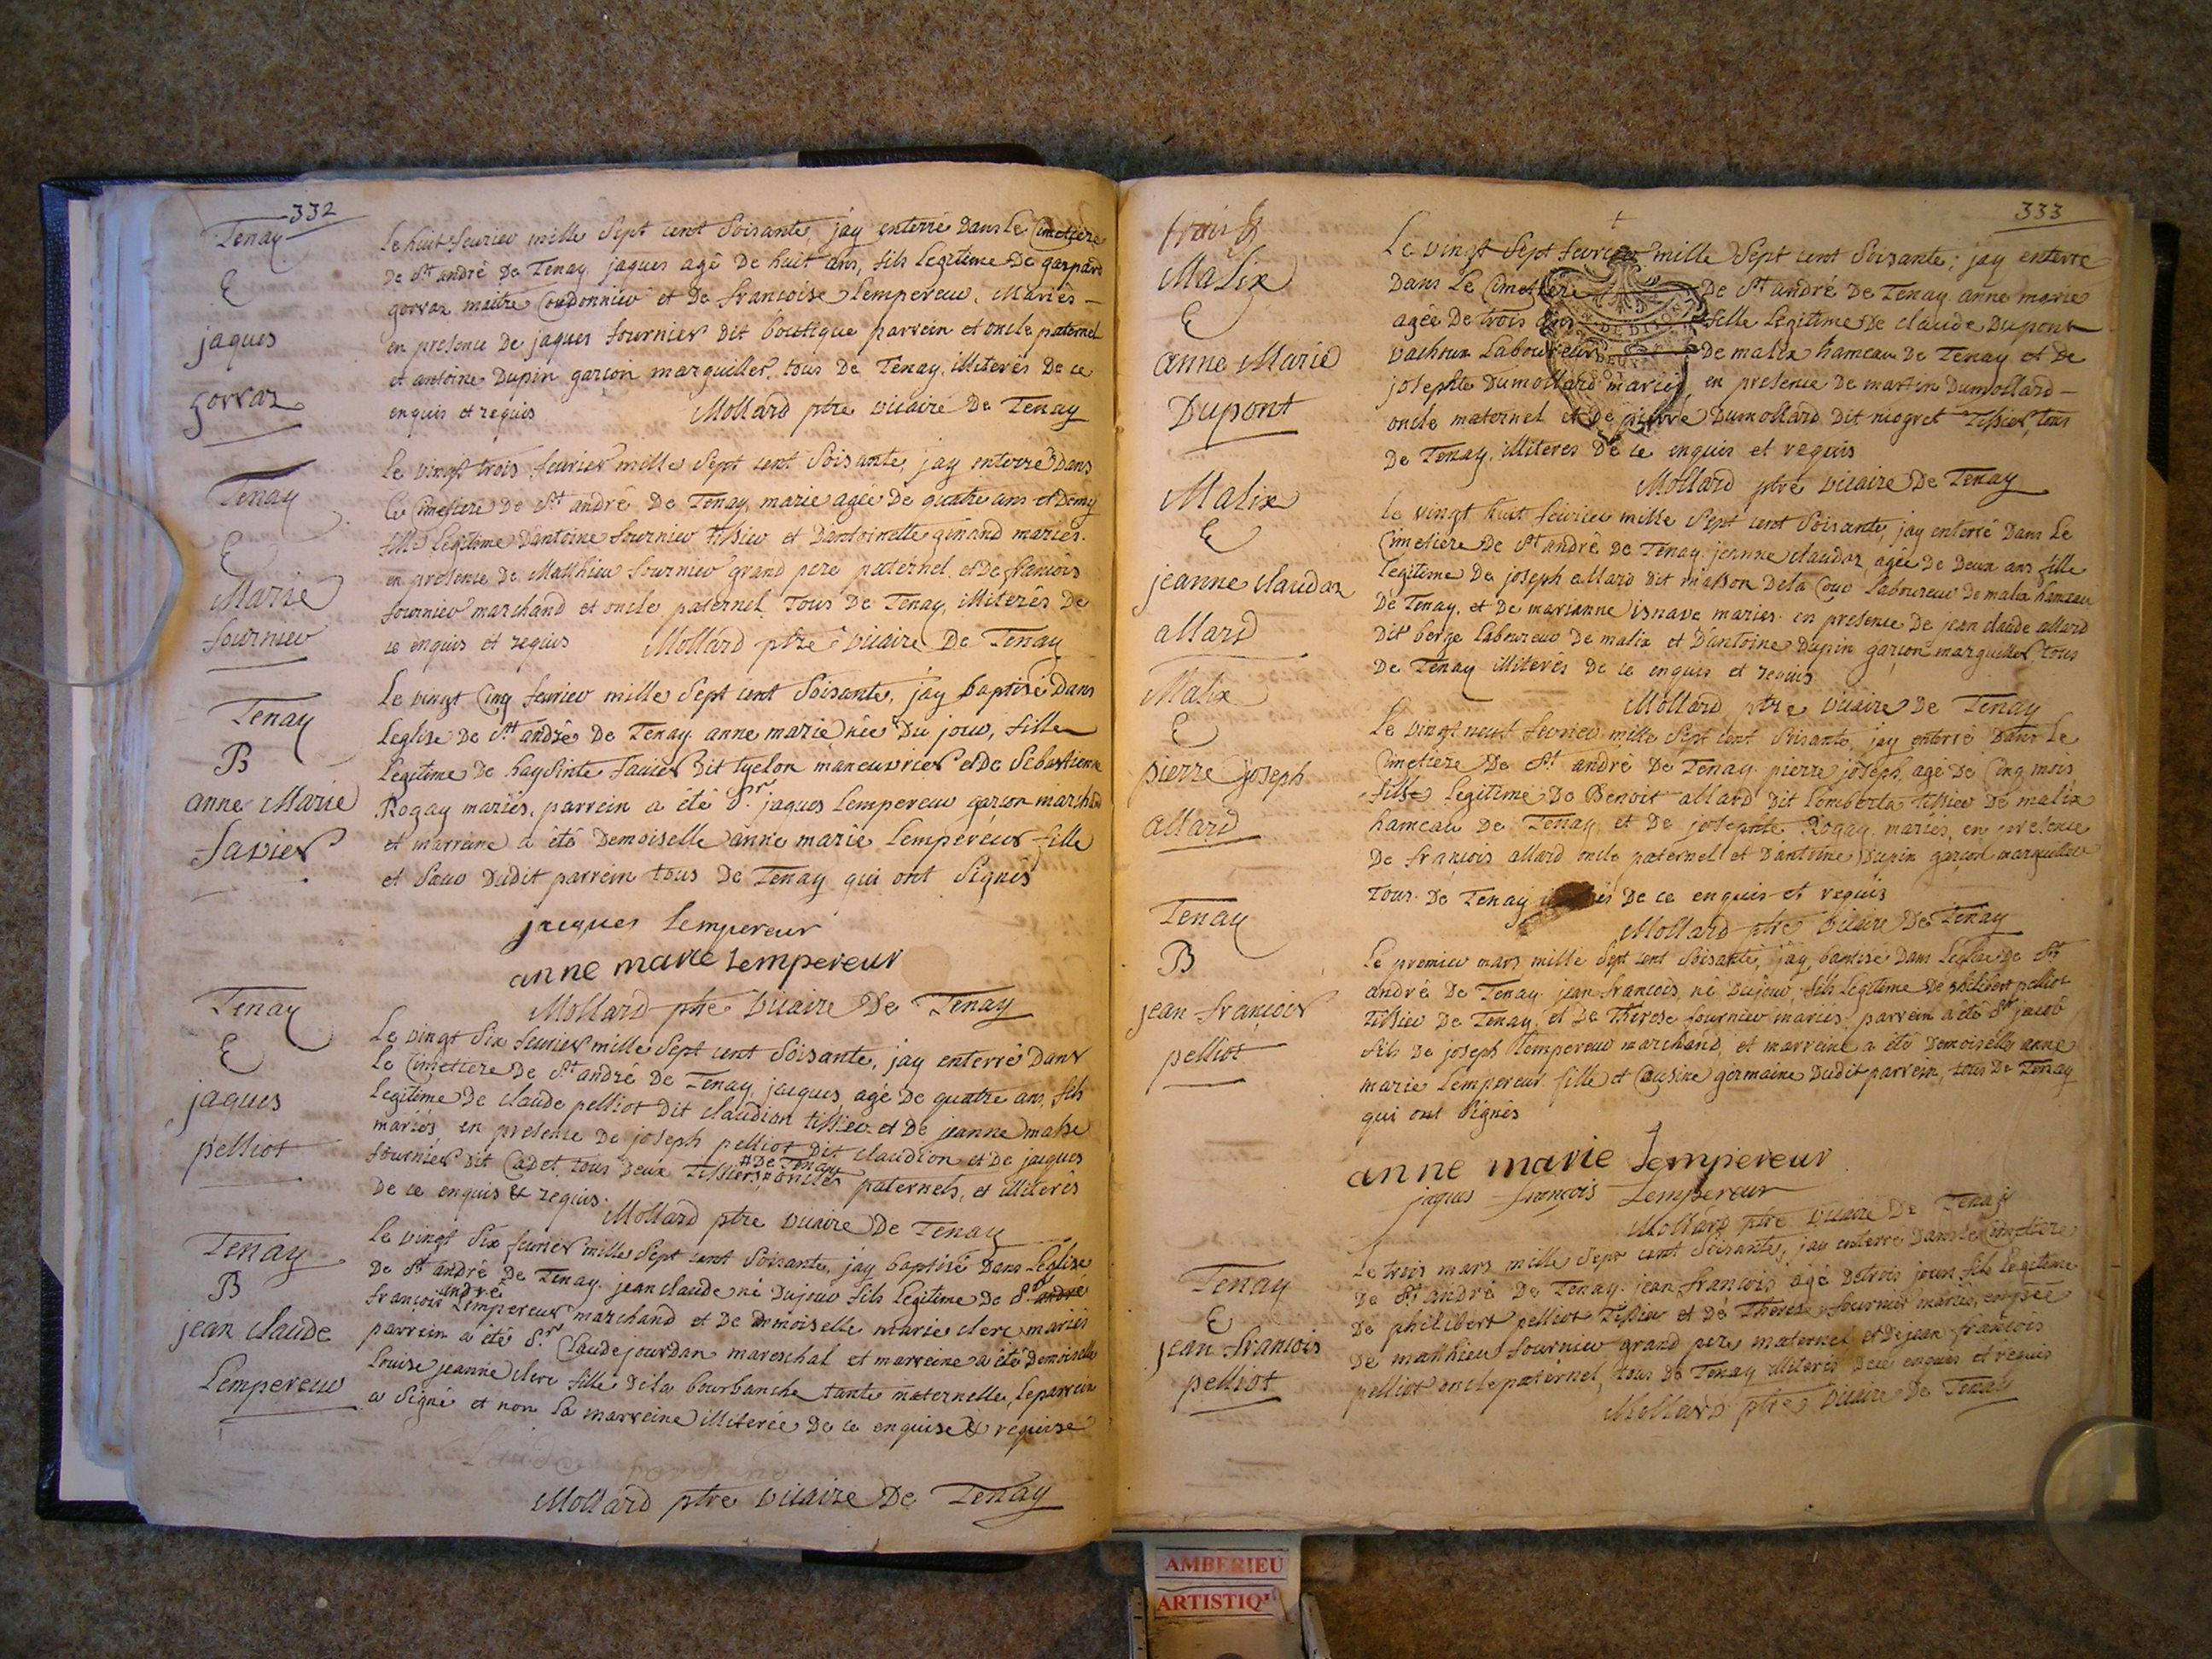 332
Tenay
E
jaques
gorraz
Le huit feurier mille Sept cent Soisante, jay enterré Dans Le Cimetiere
de St andré De Tenay. jaques agé De huit ans, fils Legitime De gaspard
gorraz maitre Cordonnier et De francoise Lempereur, Mariés
en presence De jaques fournier Dit boutique parrein et oncle paternel
et antoine Dupin garcon marguiller, tous De Tenay, illiterés De ce
enquis et requis Mollard ptre vicaire De Tenay
Tenay
E
Marie
fournier
Le vingt trois feurier mille Sept cent Soisante, jay enterré Dans
Le Cimetiere De St andré De Tenay, marie agée De quatre ans et Demy
fille Legitime Dantoine fournier tissier et Dantoinette ginand mariés.
en presence De Matthieu fournier grand pere paternel et De francois
fournier marchand et oncle paternel Tous De Tenay, illiterés De
ce enquis et requis Mollard ptre vicaire De Tenay
Tenay
B
anne Marie
Savier
Le vingt Cinq feurier mille Sept cent Soisante, jay baptisé Dans
Leglise De St andré De Tenay anne marie née Du jour, fille
Legitime De haysinte Savier Dit tyelon maneuvrier et De Sebastienne
Rogay mariés, parrein a été Sr. jaques Lempereur garçon marchd
et marreine a été Demoiselle anne marie Lempereur fille
et Sœur Dudit parrein tous De Tenay qui ont Signés
jacques Lempereur
anne marie Lempereur
Mollard ptre vicaire De Tenay
Tenay
E
jaques
pelliot
Le vingt Six feurier mille Sept cent Soisante, jay enterré Dans
Le Cimetiere De St andré De Tenay, jacques agé De quatre ans, fils
Legitime De Claude pelliot Dit Claudion tissier et De jeanne masse
mariés en presence De joseph pelliot Dit Claudion et De jacques
fournier Dit Cadet, tous Deux tissiers, # oncles paternels, et illiterés
# De Tenay
De ce enquis & requis. Mollard ptre vicaire De Tenay
Tenay
B
jean Claude
Lempereur
Le vingt Six feurier mille Sept cent Soisante, jay baptisé Dans Leglise
De St andré De Tenay. jean claude né Dujour fils Legitime De Sr andré
andré
francois Lempereur marchand et De Demoiselle marie clerc mariés
parrein a été Sr. Claude jourdan mareschal et marreine a été Demoiselle
Louise jeanne clerc fille Dela bourbanche tante maternelle, le parrein
a Signé et non la marreine illiterée De ce enquise & requise
Mollard ptre vicaire De Tenay
333
Malix
E
anne Marie
Dupont
Le vingt Sept feurier mille Sept cent Soisante, jay enterré
Dans Le Cimetiere De St andré De Tenay anne marie
agée De trois fille Legitime De claude Dupont
vachoux Laboureur De malix hameau De Tenay et De
josephte Dumollard mariés, en presence De martin Dumollard
oncle maternel et De pierre Dumollard Dit negret Tissier, tous
De Tenay, illiteres De ce enquis et requis
Mollard ptre vicaire De Tenay
Malix
E
jeanne claudaz
allard
le vingt huit feurier mille Sept cent Soisante, jay enterré Dans Le
Cimetiere De St andré De Tenay jeanne claudaz, agée De Deux ans fille
Legitime De joseph allard Dit masson Dela Cour Laboureur De malix hameau
De Tenay, et De marianne isnave mariés. en presence De jean claude allard
Dit berge Laboureur De malix et Dantoine Dupin garçon marguiller tous
De Tenay illiterés De ce enquis et requis
Mollard ptre vicaire De Tenay
Malix
E
pierre joseph
allard
Le vingt neuf fevrier mille Sept cent Soisante, jay enterré Dans Le
Cimetiere De St andré De Tenay pierre joseph, agé De Cinq mois
fils Legitime De Benoit allard Dit Lemberta tissier De malix
hameau De Tenay, et De josephte Rogay mariés, en presence
De françois allard oncle paternel et Dantoine Dupin garçon marguiller
Tous De Tenay De ce enquis et requis
Mollard ptre vicaire De Tenay
Tenay
B
jean françois
pelliot
Le premier mars mille Sept cent Soisante, jay baptisé Dans Leglise De St
andré De Tenay jean francois, né Dujour, fils Legitime De philibert pelliot
tissier De Tenay, et De Therese fournier mariés, parrein a été Sr jacob
fils De joseph Lempereur marchand, et marreine a été Demoiselle anne
marie Lempereur fille et Cousine germaine Dudit parrein, tous De Tenay
qui ont Signés
anne marie Lempereur
jaques françois Lempereur
Mollard ptre vicaire De Tenay
Tenay
E
jean francois
pelliot
Le trois mars mille Sept cent Soisante, jay enterré Dans Le Cimetiere
De St andré De Tenay. jean francois agé De trois jours fils Legitime
De philibert pelliot Tissier et De Therese fournier mariés, en pree
De matthieu fournier grand pere maternel et De jean françois
pelliot oncle paternel, tous De Tenay illiterés De ce enquis et requis
Mollard ptre vicaire De Tenay
AMBERIEU
ARTISTIQ